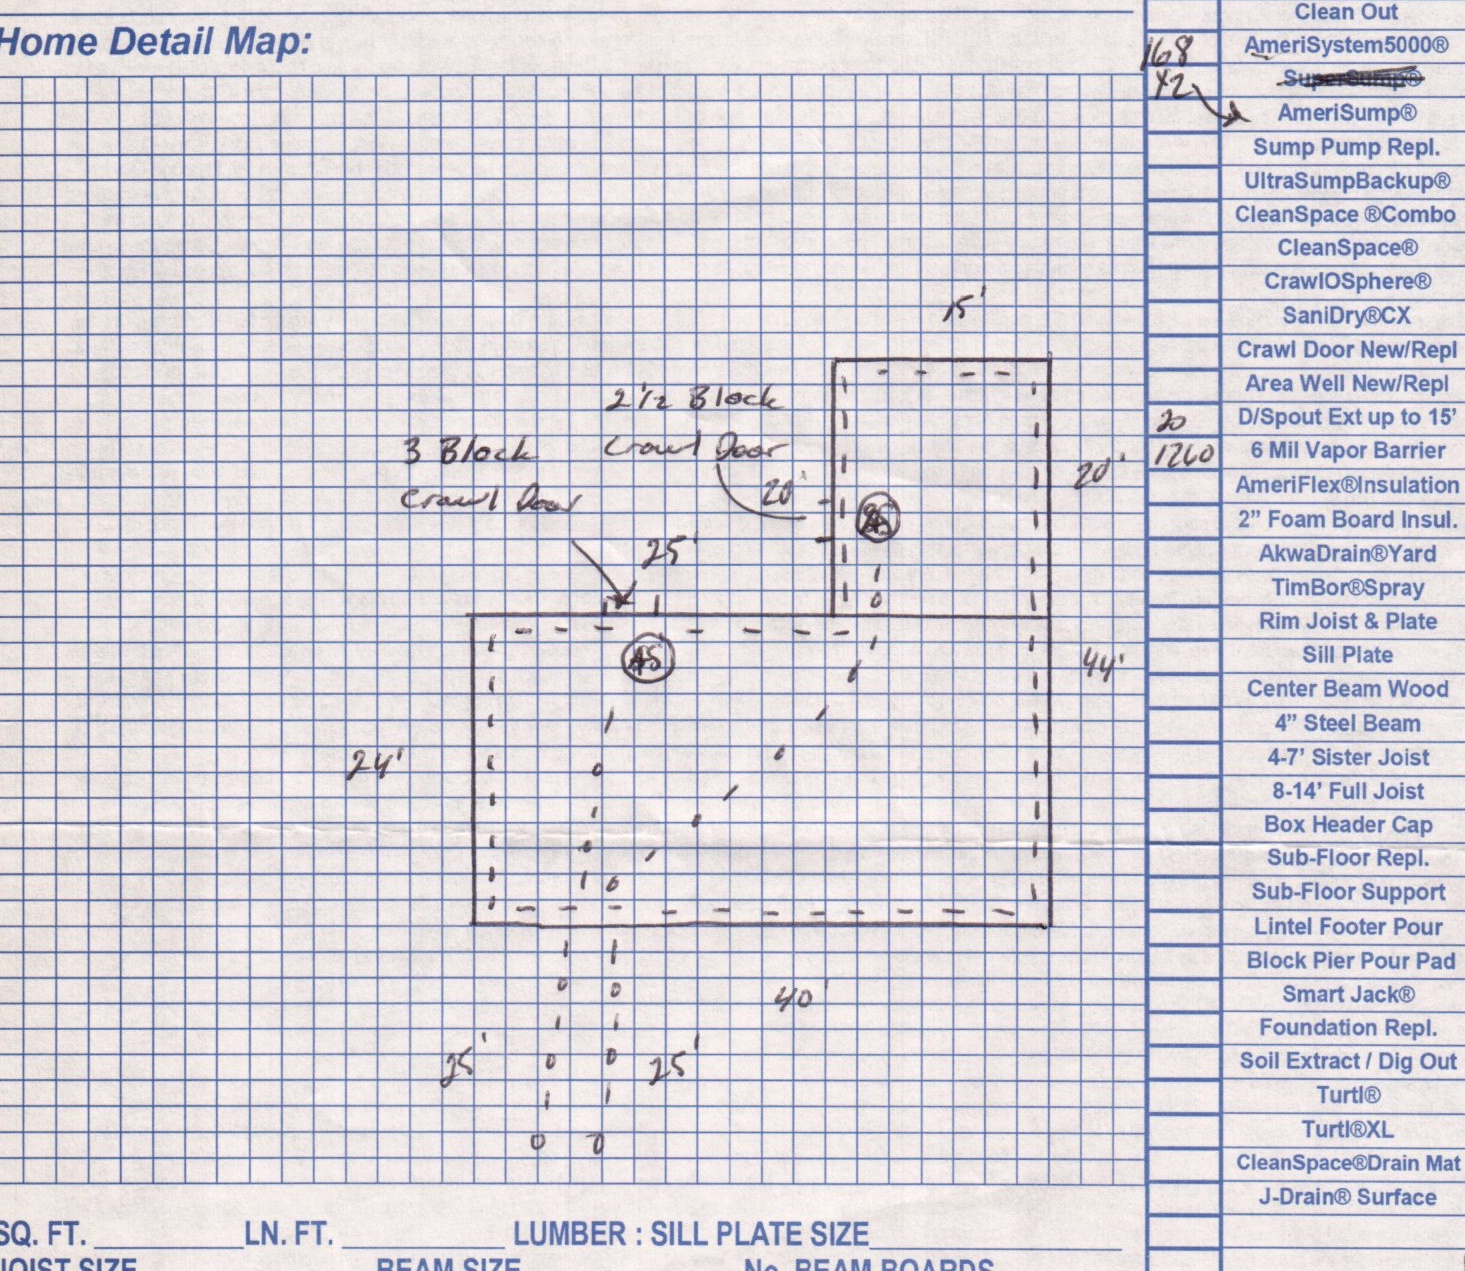 Home Detail Map:
15'
2 1/2 Block
Crawl Door
3 Block
Crawl Door
20'
25'
20'
AS
44'
24'
40'
25'
25'
Clean Out
168 AmeriSystem5000®
SuperSump®
X2 AmeriSump®
Sump Pump Repl.
UltraSumpBackup®
CleanSpace ®Combo
CleanSpace®
CrawlOSphere®
SaniDry®CX
Crawl Door New/Repl
Area Well New/Repl
20 D/Spout Ext up to 15'
1260 6 Mil Vapor Barrier
AmeriFlex®Insulation
2” Foam Board Insul.
AkwaDrain®Yard
TimBor®Spray
Rim Joist & Plate
Sill Plate
Center Beam Wood
4” Steel Beam
4-7’ Sister Joist
8-14’ Full Joist
Box Header Cap
Sub-Floor Repl.
Sub-Floor Support
Lintel Footer Pour
Block Pier Pour Pad
Smart Jack®
Foundation Repl.
Soil Extract / Dig Out
Turtl®
Turtl®XL
CleanSpace®Drain Mat
J-Drain® Surface
SQ. FT. LN. FT. LUMBER : SILL PLATE SIZE
JOIST SIZE BEAM SIZE No. BEAM BOARDS